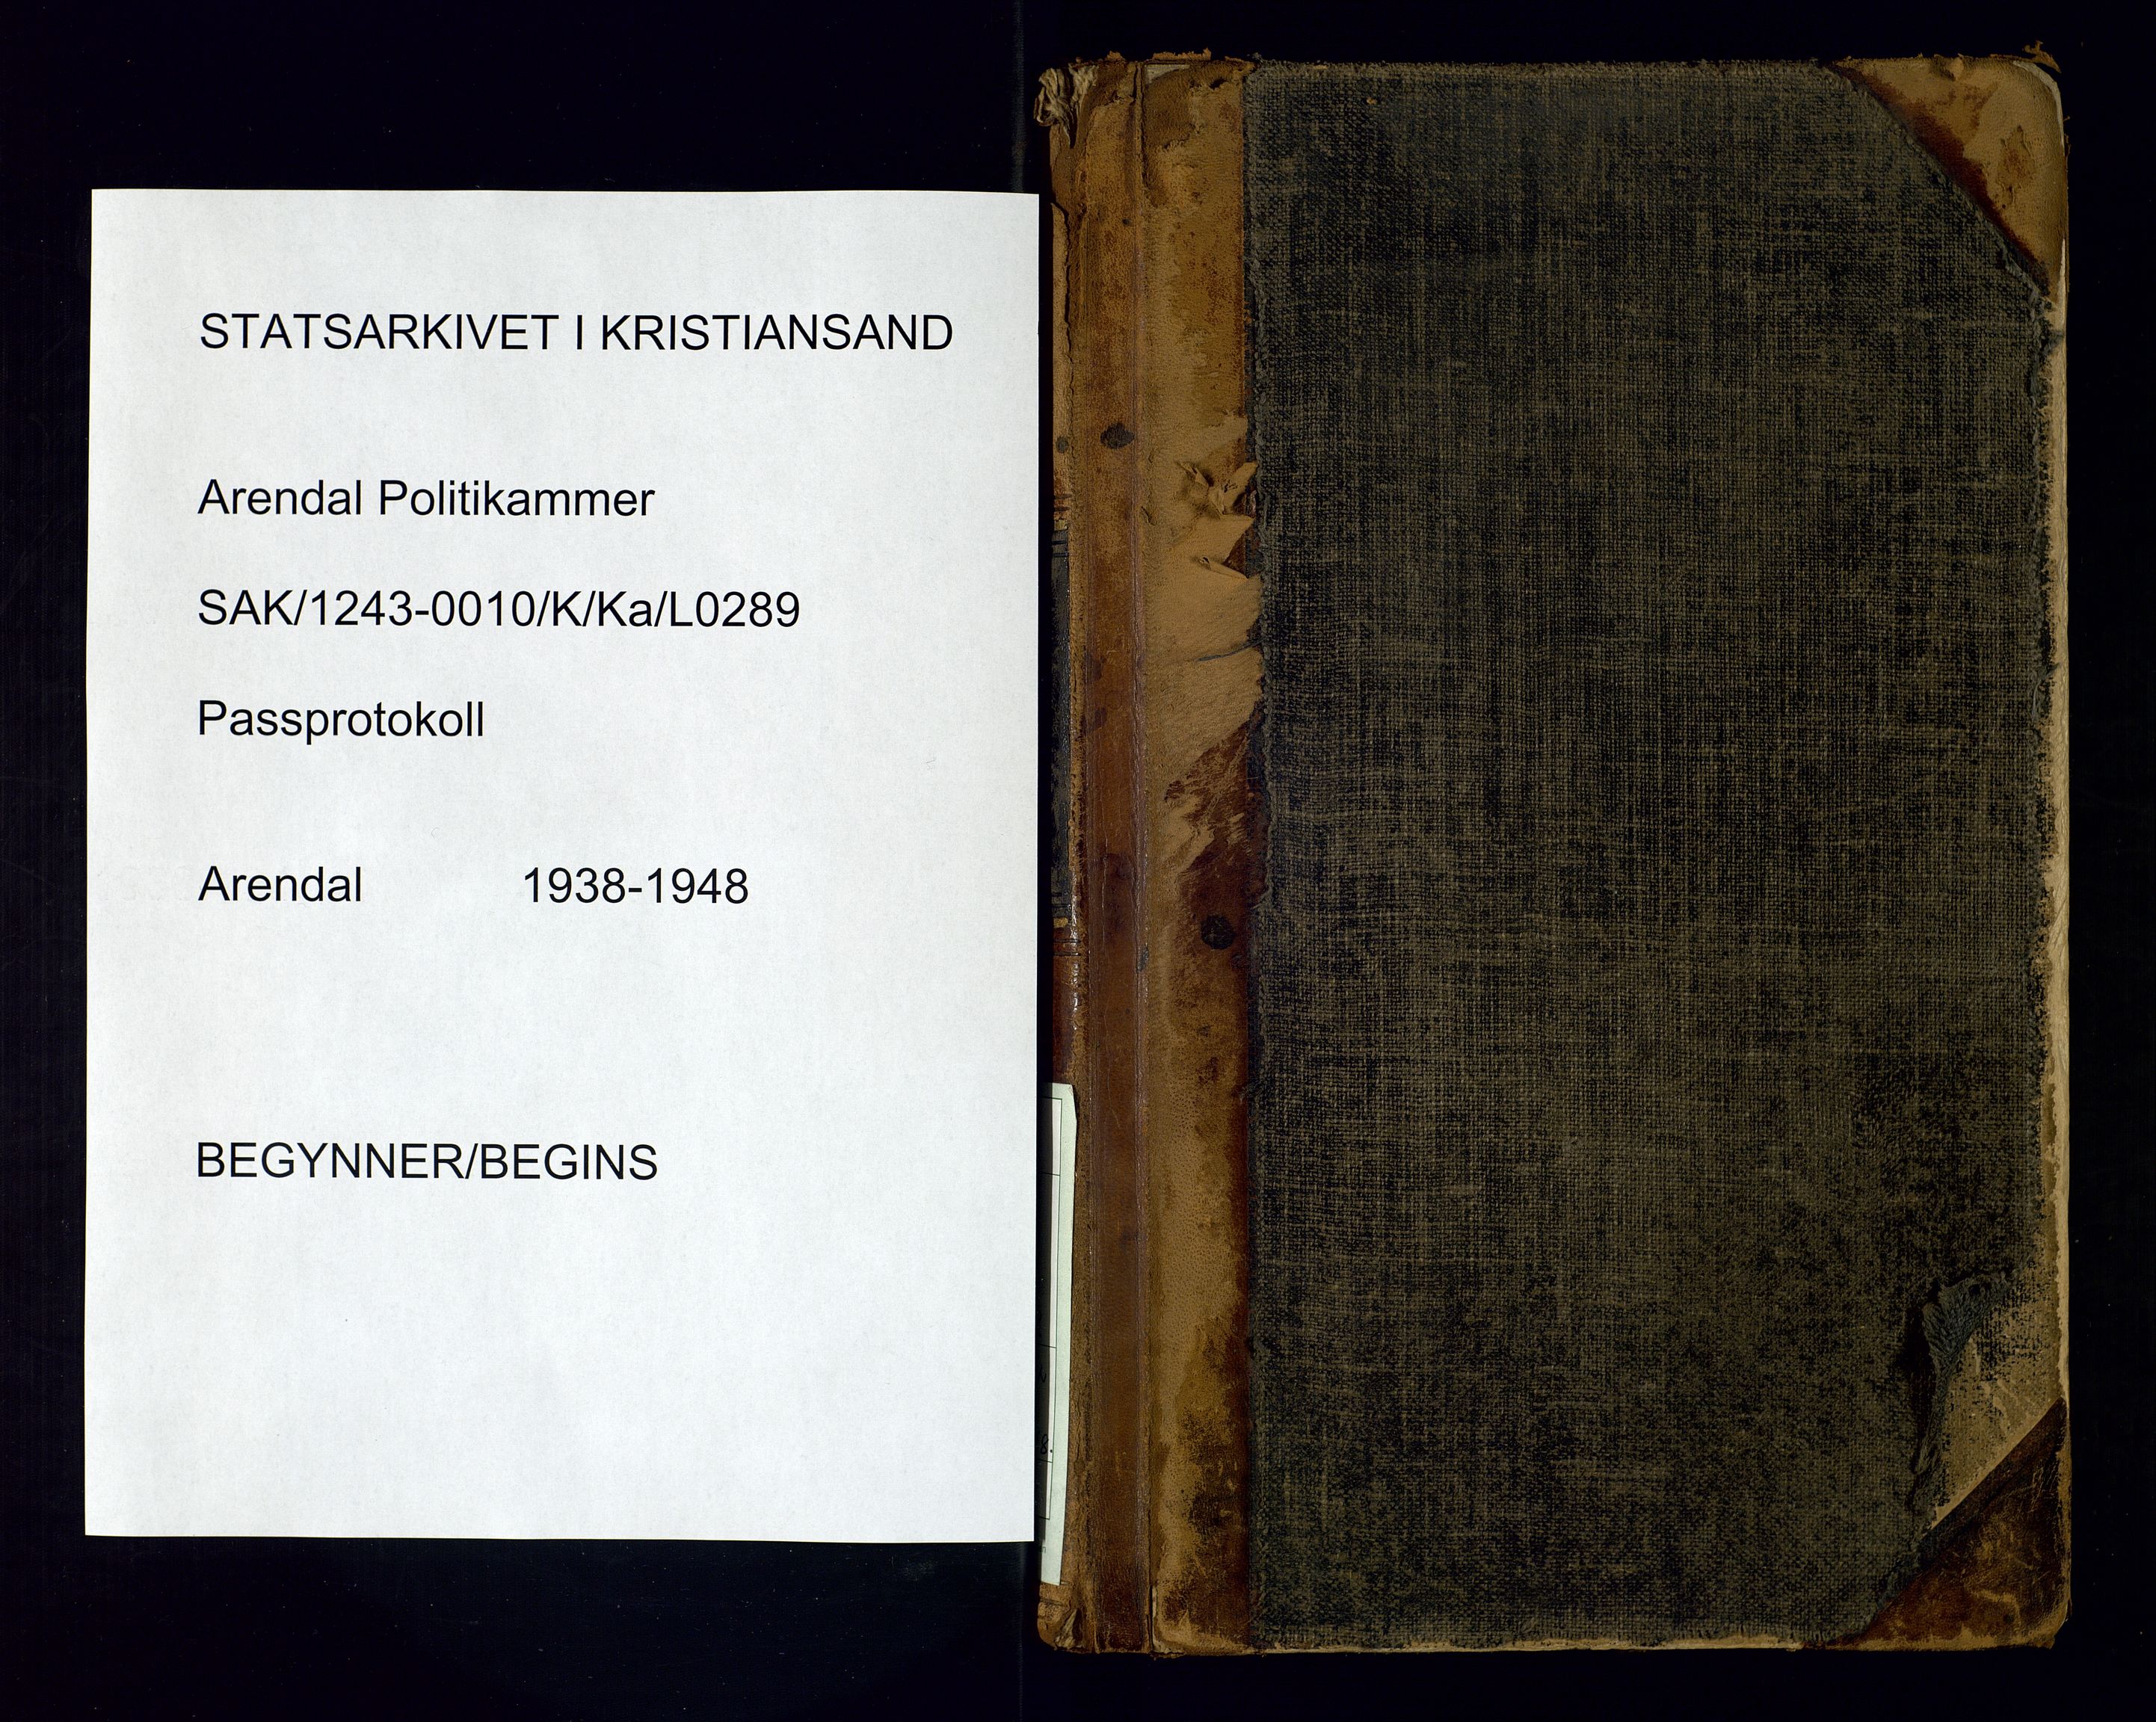 STATSARKIVET I KRISTIANSAND
Arendal Politikammer
SAK/1243-0010/K/Ka/L0289
Passprotokoll
Arendal 1938-1948
BEGYNNER/BEGINS